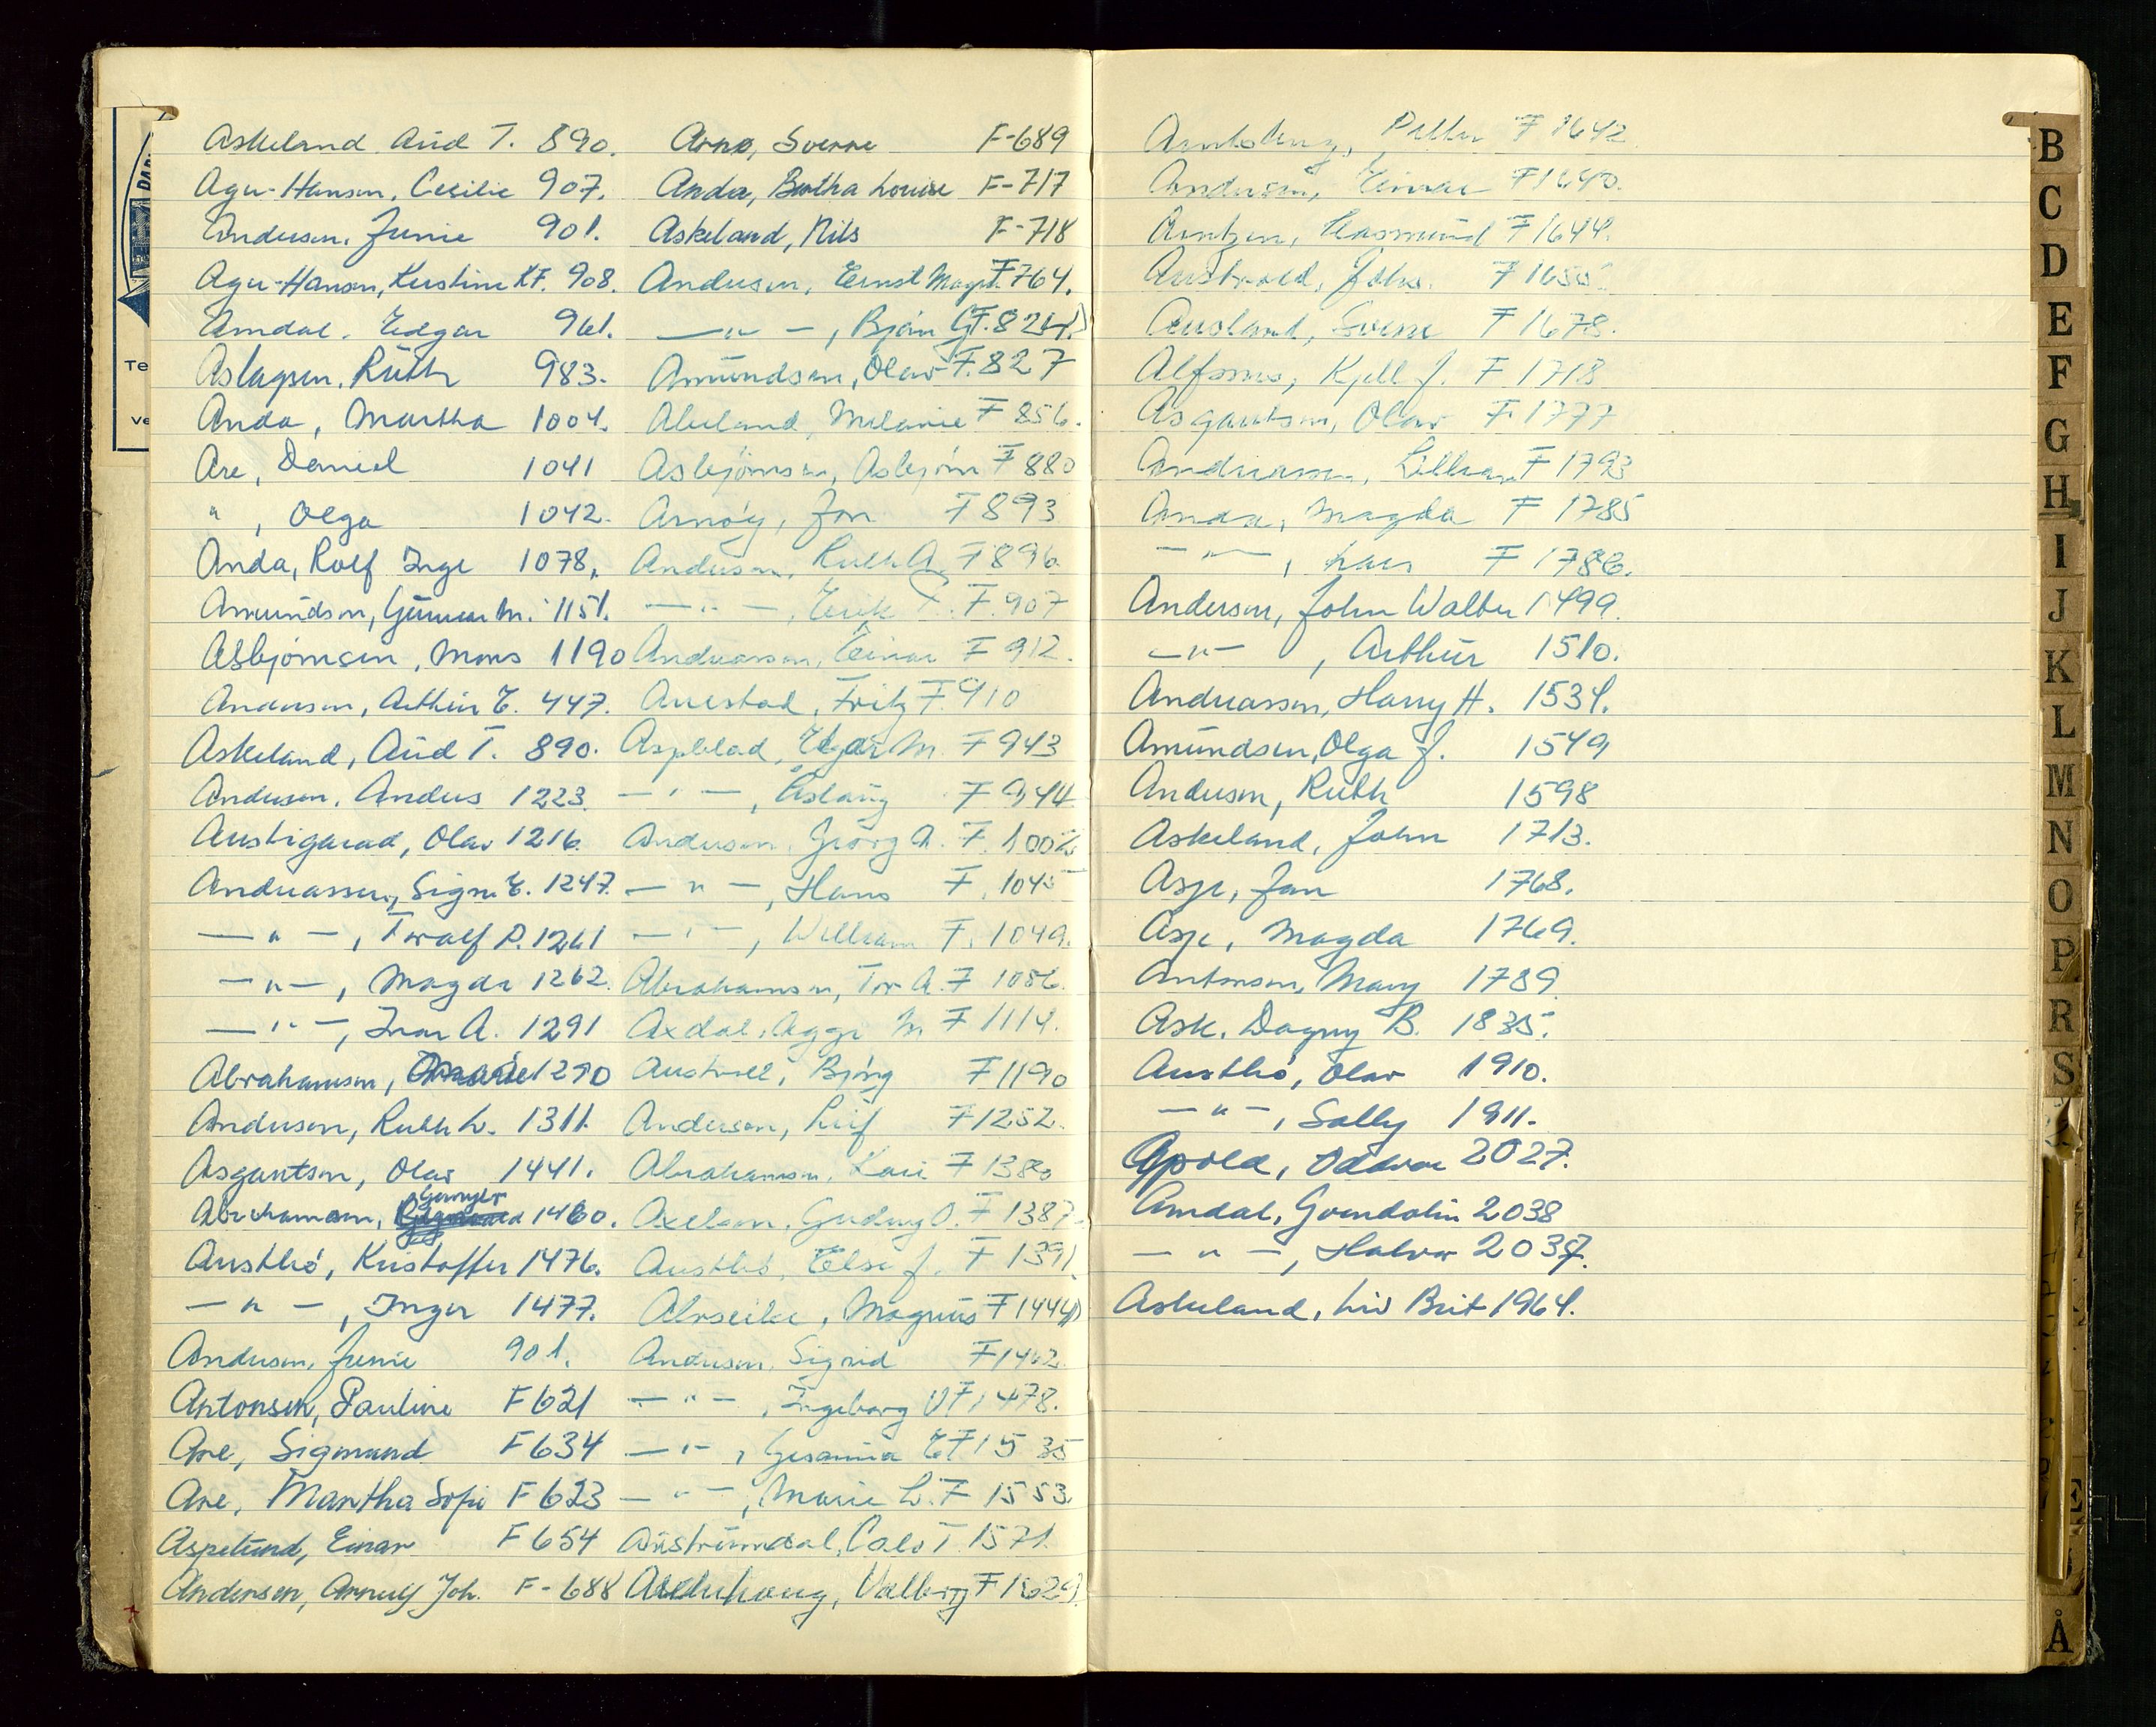 Askeland Aud T. 890.
Ager-Hansen, Cecilie 907.
Andersen, Junie 901.
Ager-Hansen, Kirstine K.F. 908.
Amdal, Edgar 961.
Aslagsen, Ruth 983.
Anda, Martha 1004.
Are, Daniel 1041
" , Olga 1042.
Anda, Rolf Inge 1078.
Amundsen, Gunnar M. 1151.
Asbjörnsen, Mons 1190
Andersen, Arthur E. 447.
Askeland, Aud T. 890.
Andersen, Anders 1223.
Austigarad, Olav 1216.
Andreassen, Signe E. 1247.
— " — , Toralf P. 1261
— " — , Magda 1262.
— " — , Ivar A. 1291
Abrahamsen, 1290
Andersen, Ruth L. 1311.
Asgautsen, Olav 1441.
Abrahamsen, 1460.
Austbö, Kristoffer 1476.
— " — , Inger 1477.
Andersen, Junie 901.
Antonsen, Pauline F 621
Are, Sigmund F 634
Are, Martha Sofie F 623
Aspelund, Einar F 654
Andersen, Arnulf Joh. F-688
Arnø, Sverre F-689
Anda, Bertha Louise F-717
Askeland, Nils F-718
Andersen, Ernst Magn. F 764.
— " — , Björn G. F. 824.
Amundsen, Olav F. 827
Abeland, Melanie F 856.
Asbjörnsen, Asbjörn F 880
Arnöy, Jon F 893
Andersen, Ruth A. F 896
— " — , Erik T. F. 907
Andreassen, Einar F 912.
Auestad, Fritz F. 910
Aspblad, Edgar M. F 943
— " — , Åslaug F 944
Andersen, Georg A. F. 1002
— " — , Hans F. 1045
— " — , William F. 1049.
Abrahamsen, Tor A. F 1086.
Axdal, Aage M. F 1114.
Austvoll, Björg F 1190
Andersen, Leif F 1252.
Abrahamsen, Kari F 1380
Axelsen, Gudny O. F 1387.
Austbö, Else J. F 1391.
Magnus F 1444
Andersen, Sigrid F 1462.
— " — , Ingeborg F 1478.
— " — , Gesanna E F 1535
— " — , Marie L. F 1553.
Austrumdal, T. 1571.
Valborg F 1629.
Arntsberg, Petter F 1642
Andersen, Einar F 1640.
Arntzen, Rasmund F 1644.
Austvold, John F 1655.
Ausland, Sverre F 1678.
Alfsnes, Kjell J. F 1718
Asgautsen, Olav F 1777
Andreassen, Lillian F 1793
Anda, Magda F 1785
— " — , Lars F 1786.
Andersen, John Walter 1499.
— " — , Arthur 1510.
Andreassen, Harry H. 1534.
Amundsen, Olga J. 1549
Andersen, Ruth 1598
Askeland, John 1713.
Asp, Jan 1768.
Asp, Magda 1769.
Antonsen, Mary 1789.
Ask, Dagny B. 1835.
Austbö, Olav 1910.
— " — , Sally 1911.
Apold, Oddvar 2027.
Amdal, Gvendolin 2038
— " — , Halvor 2037.
Askeland, Liv Brit 1964.
B
C
D
E
F
G
H
I
J
K
L
M
N
O
P
R
S
Å
Te
ve